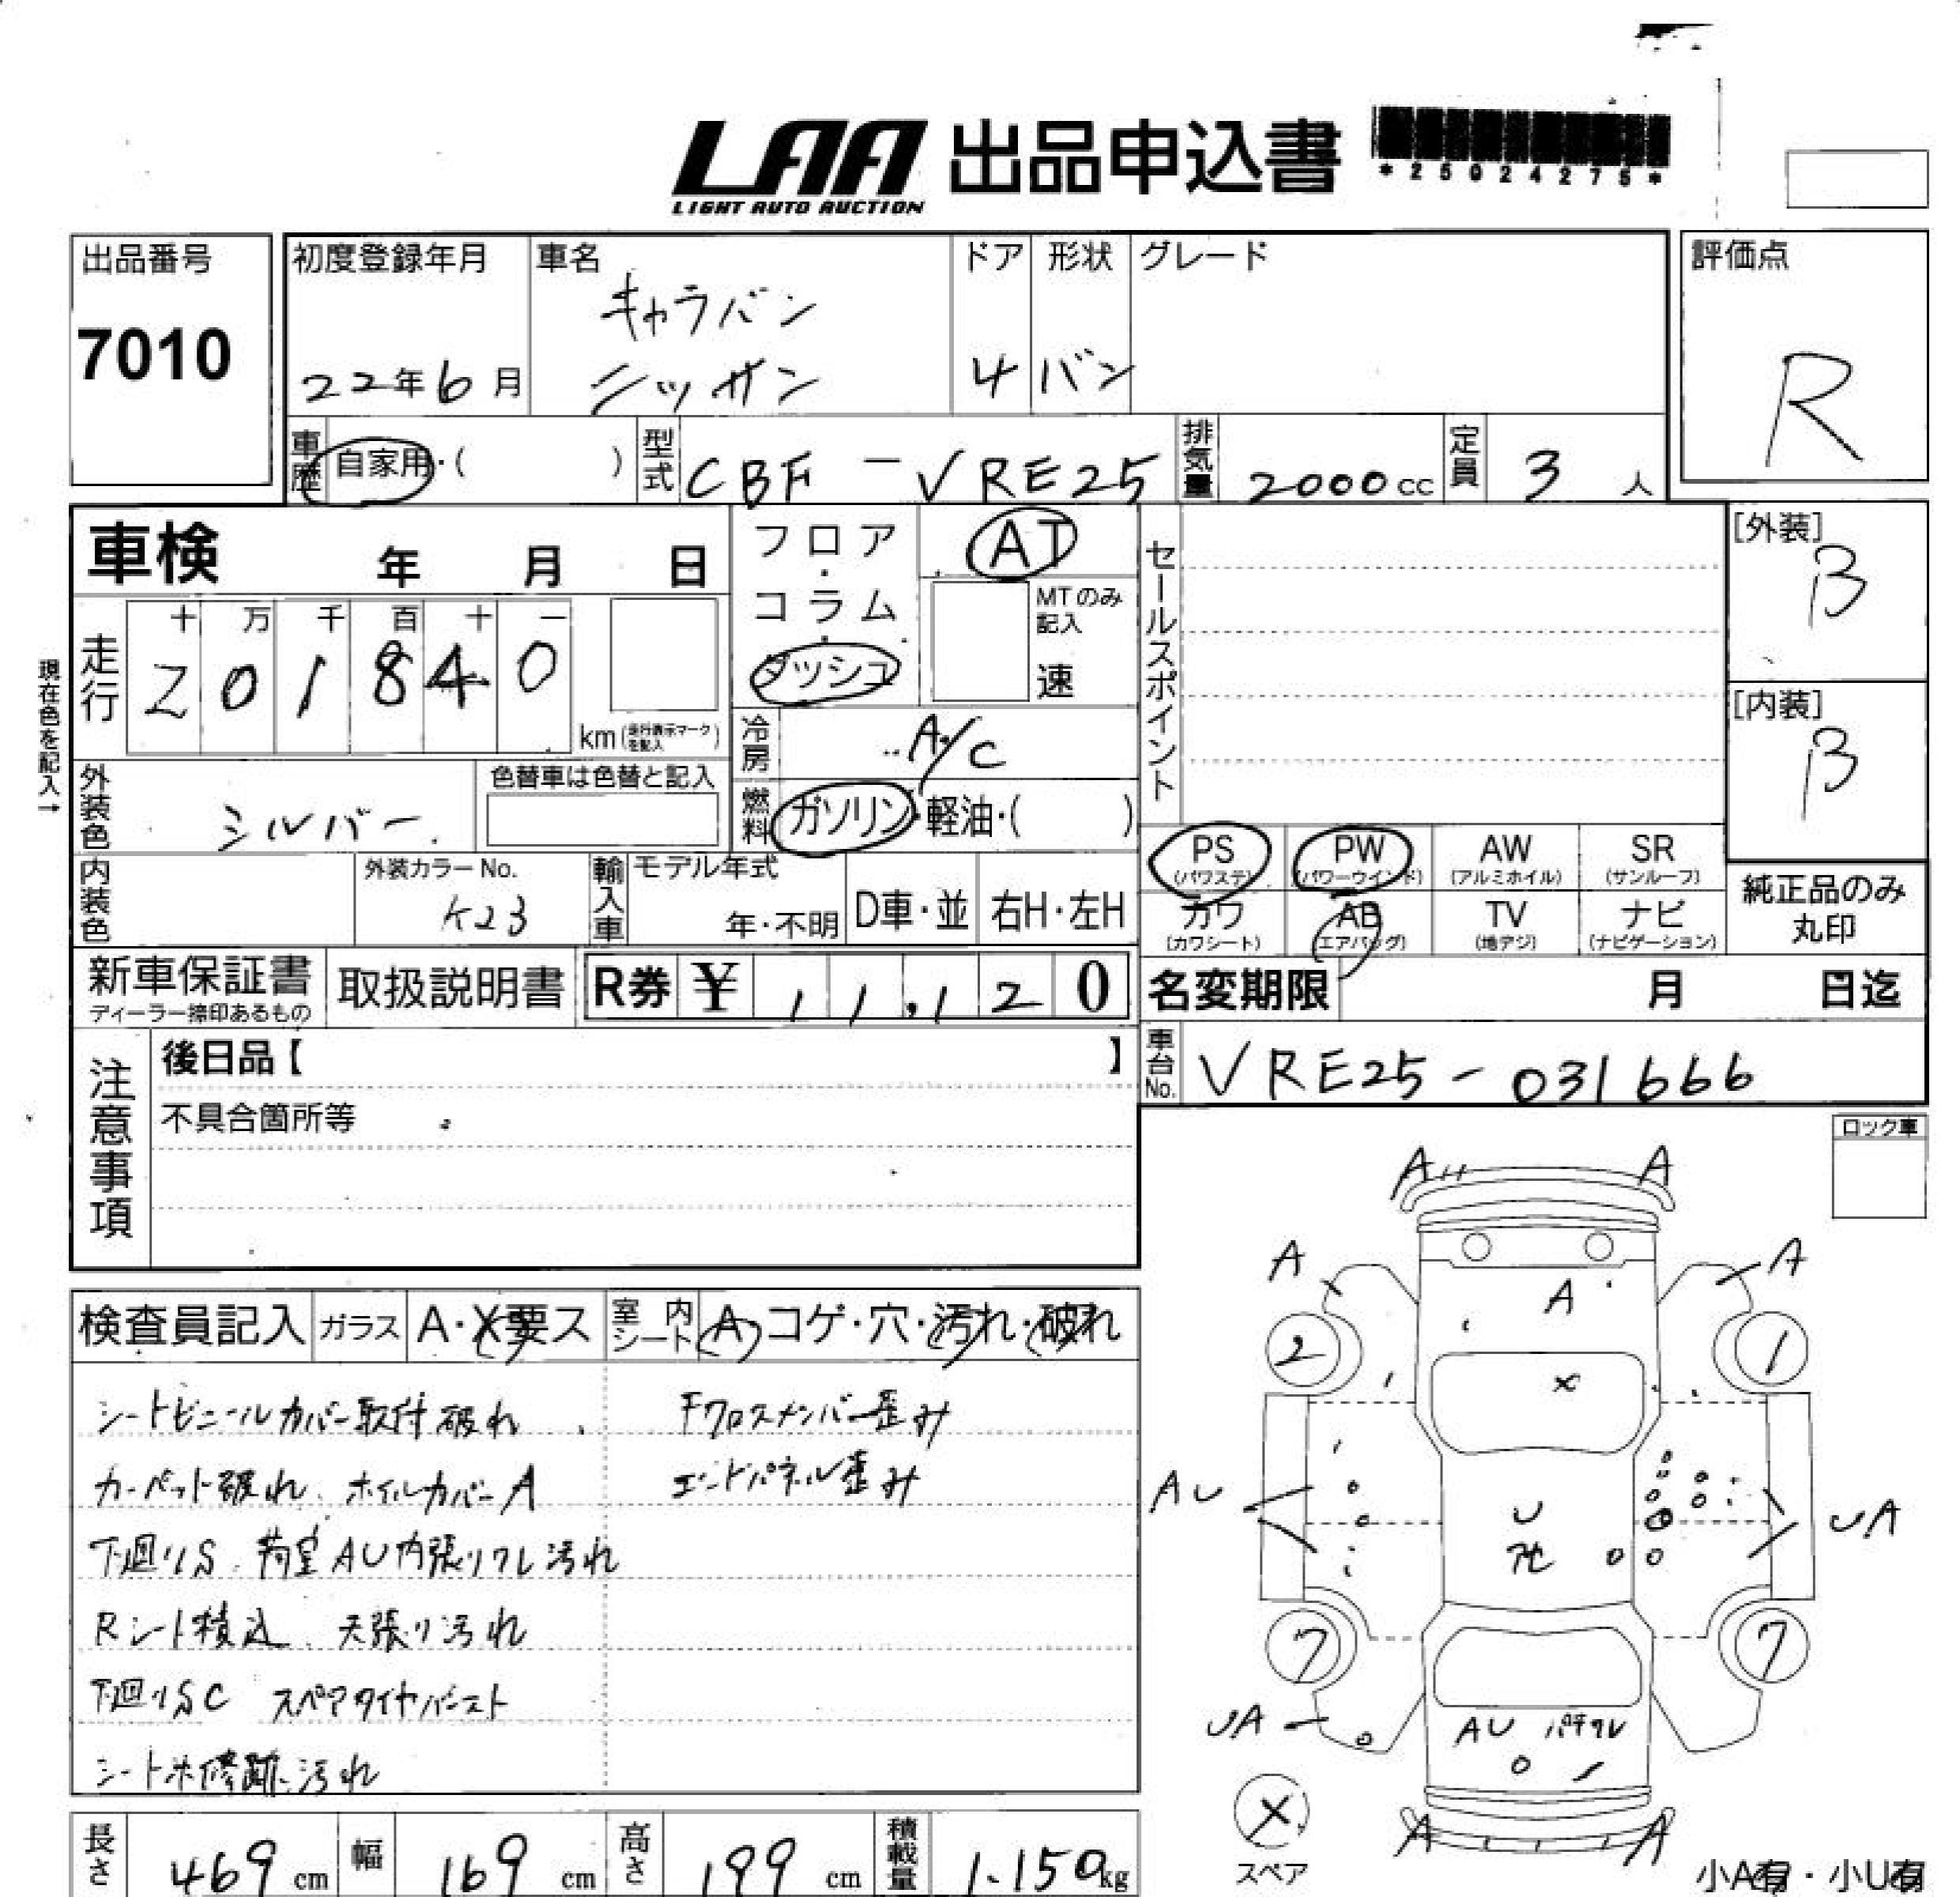 LAA 出品申込書
LIGHT AUTO AUCTION
*25024275*
出品番号
7010
初度登録年月
22年6月
車名
キャラバン
ニッサン
ドア
4
形状
バン
グレード
評価点
R
車歴 自家用・( )
型式 CBF-VRE25
排気量 2000cc
定員 3人
車検 年 月 日
フロア・コラム・ダッシュ
AT
MTのみ記入
速
セールスポイント
[外装]
B
[内装]
B
現在色を記入→
走行 十 万 千 百 十 一
2 0 1 8 4 0
km(走行表示マークを記入)
冷房 A/C
燃料 ガソリン・軽油・( )
外装色 シルバー
色替車は色替と記入
内装色
外装カラーNo.
K23
輸入車 モデル年式
年・不明 D車・並 右H・左H
PS (パワステ)
PW (パワーウインド)
AW (アルミホイル)
SR (サンルーフ)
カワ (カワシート)
AB (エアバッグ)
TV (地デジ)
ナビ (ナビゲーション)
純正品のみ丸印
新車保証書
ディーラー捺印あるもの
取扱説明書
R券 ¥ 11,120
名変期限 月 日迄
車台No. VRE25-031666
注意事項
後日品【 】
不具合箇所等
ロック車
検査員記入 ガラス A・X 要ス 室内シート A コゲ・穴・汚れ・破れ
シートビニールカバー取付破れ
Fクロスメンバー歪み
カーペット破れ ホイルカバーA
エンドパネル歪み
下廻りS 荷室AU内張りワレ汚れ
Rシート積込 天張り汚れ
下廻りSC スペアタイヤバースト
シート 汚れ
A A
A A
A
2 1
X
AU
U
UA
7 7
UA
AU
X
スペア
A A
小A有・小U有
長さ 469cm
幅 169cm
高さ 199cm
積載量 1.150kg